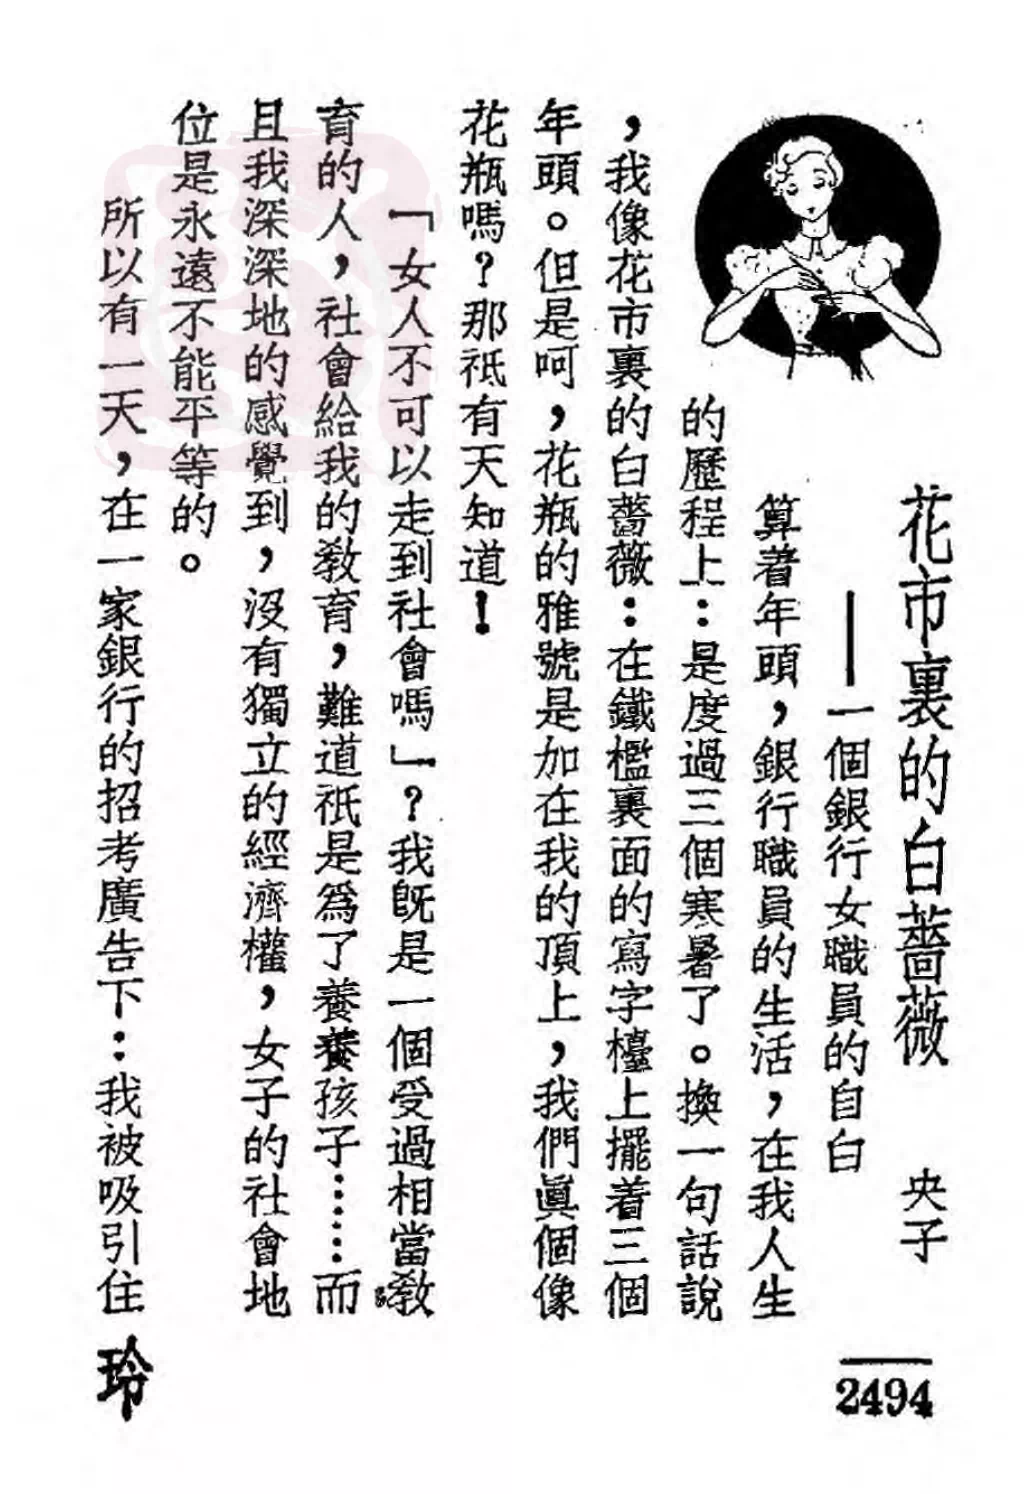 花市裏的白薔薇　央子
——一個銀行女職員的自白
算着年頭，銀行職員的生活，在我人生
的歷程上：是度過三個寒暑了。換一句話說
，我像花市裏的白薔薇：在鐵檻裏面的寫字檯上擺着三個
年頭。但是呵，花瓶的雅號是加在我的頂上，我們眞個像
花瓶嗎？那祇有天知道！
「女人不可以走到社會嗎」？我旣是一個受過相當敎
育的人，社會給我的敎育，難道祇是爲了養養孩子……而
且我深深地的感覺到，沒有獨立的經濟權，女子的社會地
位是永遠不能平等的。
所以有一天，在一家銀行的招考廣告下：我被吸引住
玲
2494